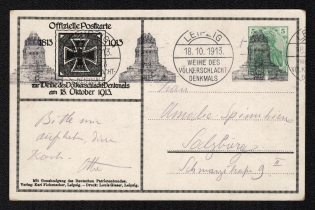 Offizielle Postkarte
1813 1913
zur Weihe des Völkerschlachtdenkmals
am 18. Oktober 1913.
LEIPZIG
18.10.1913.
WEIHE DES
VÖLKERSCHLACHT
DENKMALS
5
Herrn
Salzburg
Schwarzstraße 9
II
Bitte mir
Karte. Otto
Mit Genehmigung des Deutschen Patriotenbundes.
Verlag Karl Leipzig - Druck: Louis Leipzig.